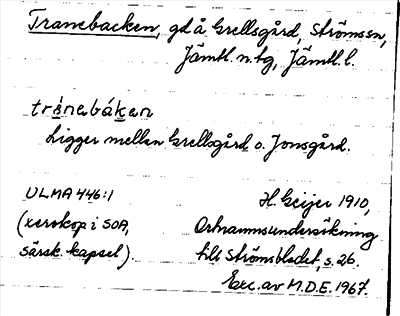 Tranebacken, gd å Grellsgård, Ströms sn,
Jämtl. n. tg, Jämtl. l.
trénebáken
Ligger mellan Grellsgård o. Jonsgård.
ULMA 446:1
(xerokop i SOA,
särsk. kapsel).
H. Geijer 1910,
Ortnamnsundersökning
till Strömsbladet, s. 26.
Exc. av M.D.E. 1967.